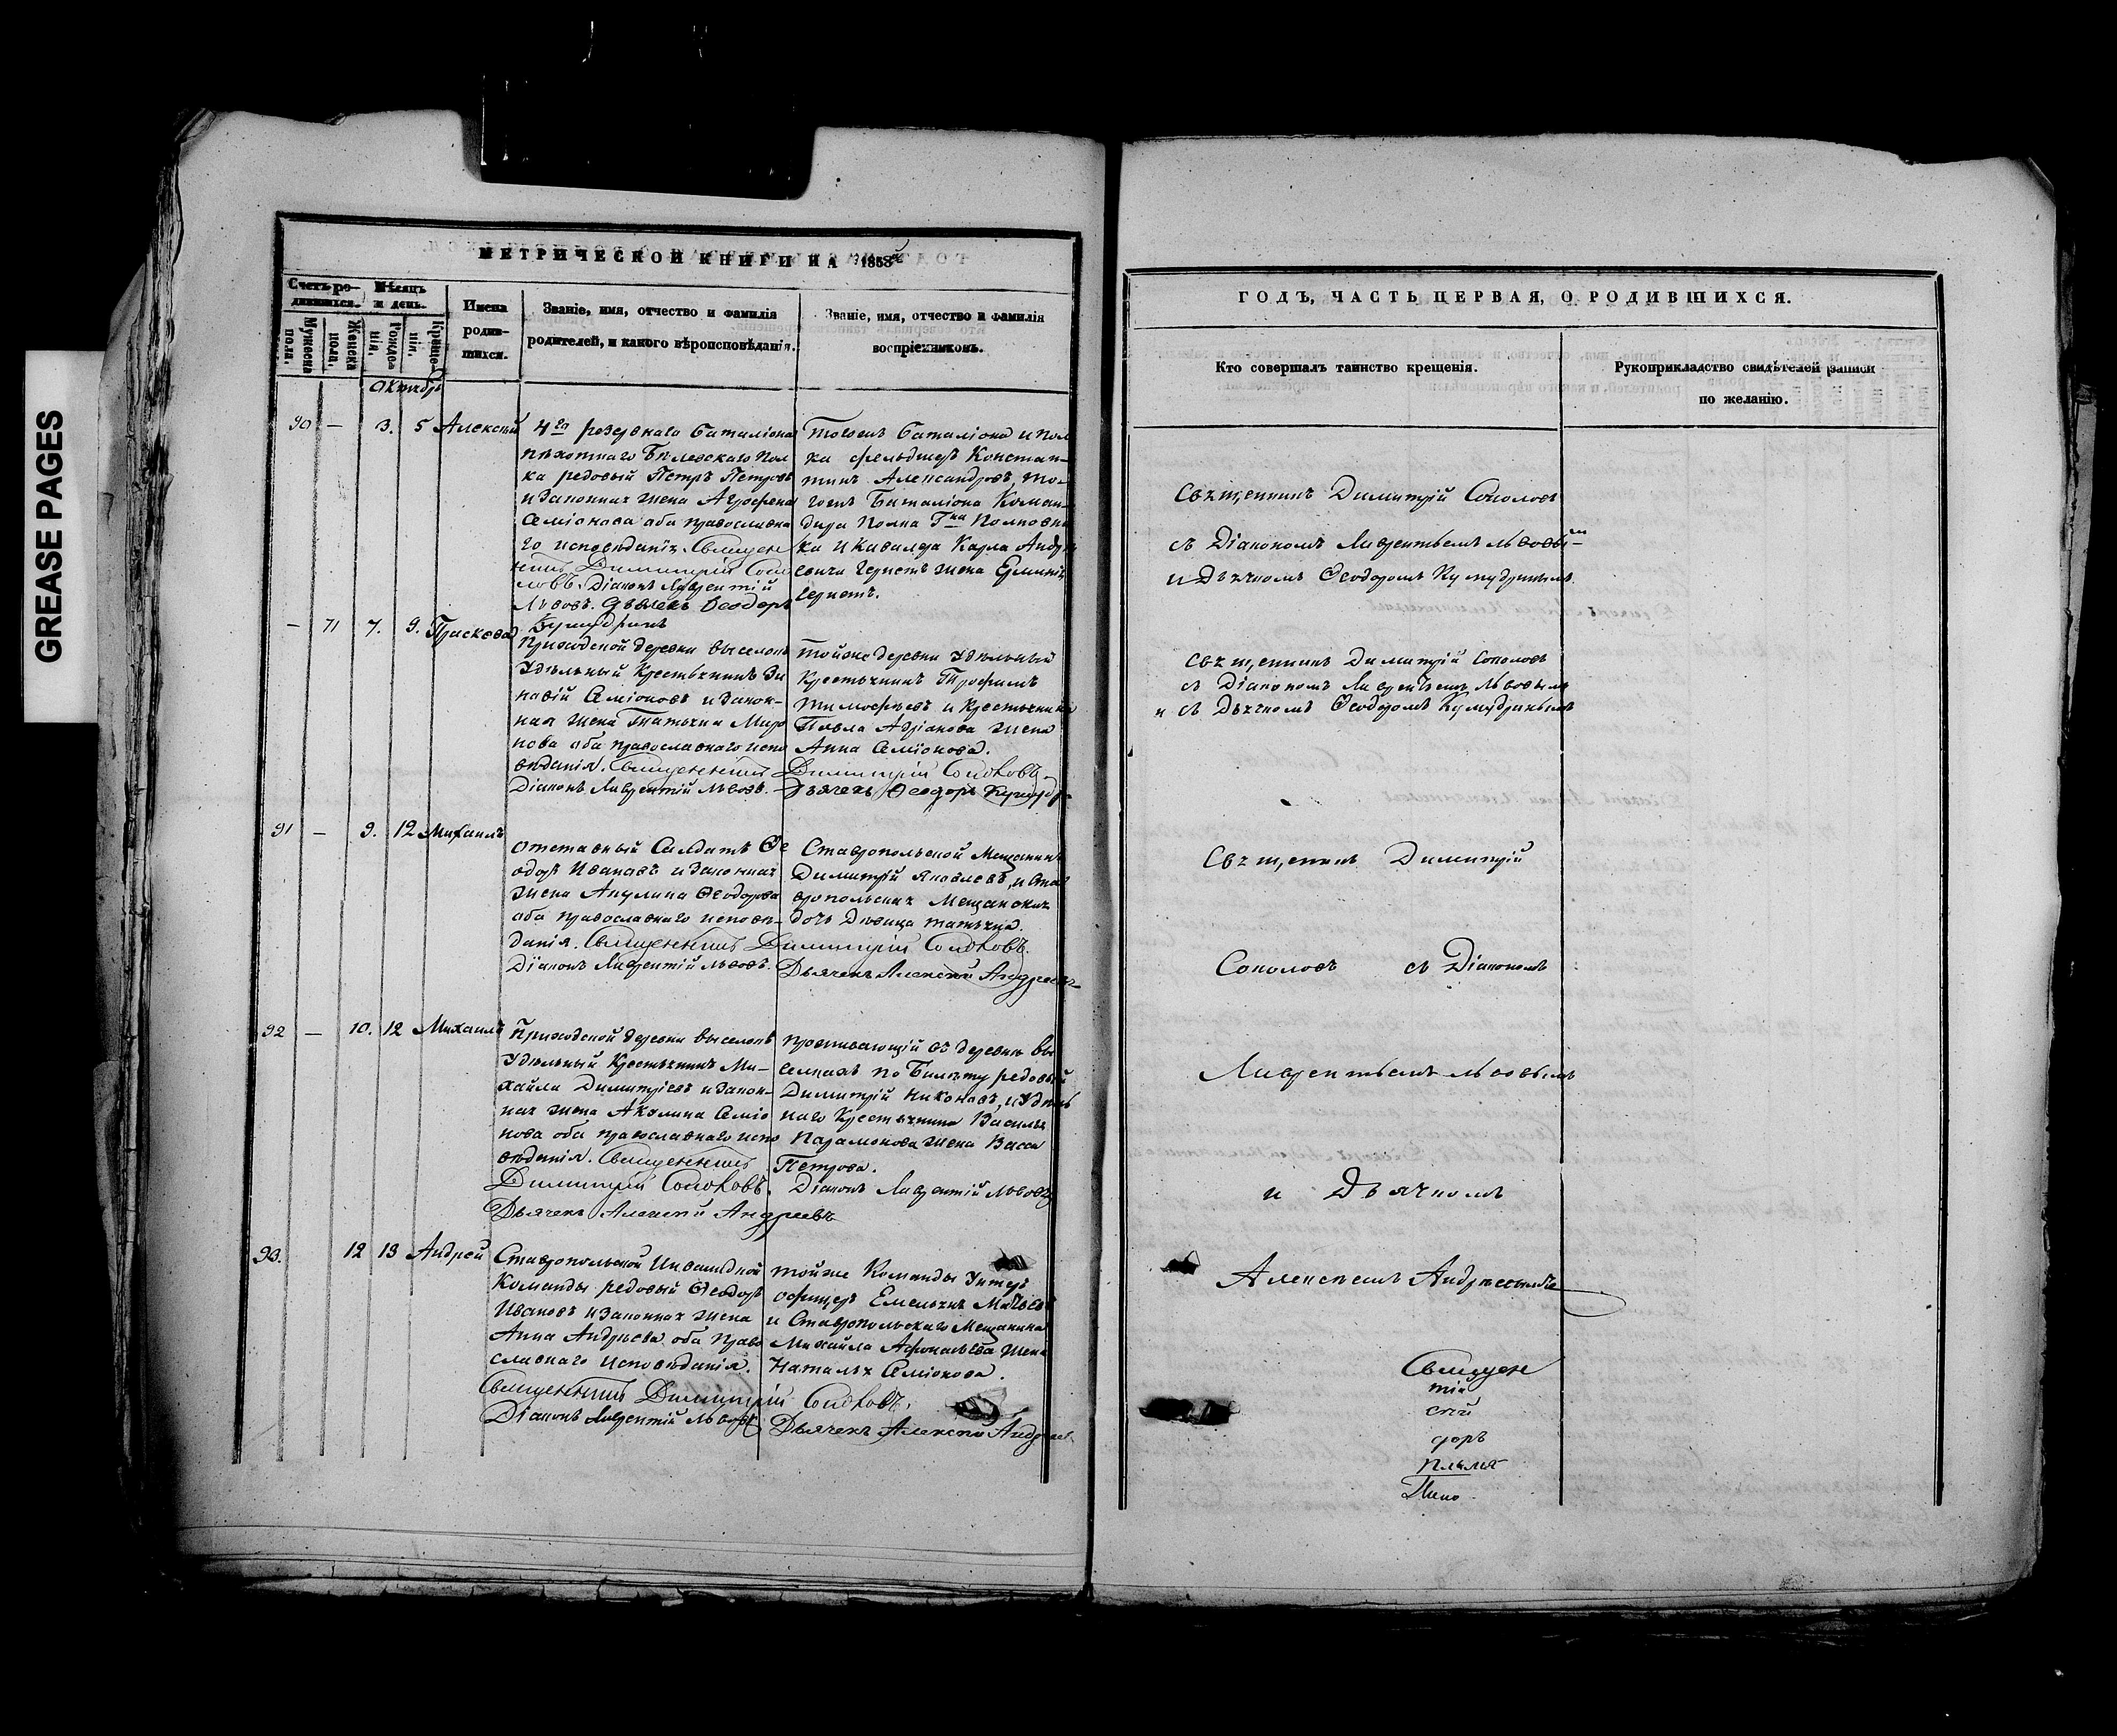 GREASE PAGES
МЕТРИЧЕСКОЙ КНИГИ НА 1858й
Счетъ ро-
дившихся.
Мѣсяцъ
и день.
Мужеска
пола.
Женска
пола.
Рожде-
нія.
Креще-
нія.
Имена
родив-
шихся.
Званіе, имя, отчество и фамилія
родителей, и какого вѣроисповѣданія.
Званіе, имя, отчество и фамилія
воспріемниковъ.
Октябрь
90 — 3. 5 Алексѣй
4го резервнаго баталіона
пѣхотнаго Бѣлевскаго пол
ка редовый Петръ Петровъ
и законная жена Агрофена
Семіонова оба православна
го исповѣданія. Священ
никъ Димитрій Соко
ловъ. Діаконъ Лаврентій
Львовъ. Дьячекъ Ѳеодоръ
Кумудринъ
Тогоже баталіона и пол
ка фельдшеръ Констан-
тинъ Александровъ, то-
гоже Баталіона Коман-
дира Полка Гна Полковни
ка и Кавалера Карла Андре
евича Гернетъ жена Ерминія
Гернетъ.
— 71 7. 9. Прасковья
Приходской деревни выселокъ
Удѣльный Крестьянинъ Зи
новій Семіоновъ и закон-
ная жена Татьяна Миро
нова оба православнаго испо
вѣданія. Священникъ Димитрій Соколовъ.
Діаконъ Лаврентій Львовъ. Дьячекъ Ѳеодоръ Кумудр
тойже деревни Удѣльный
Крестьянинъ Трофимъ
Тимофѣевъ и Крестьянина
Павла Адріанова жена
Анна Семіонова.
91 — 9. 12 Михаилъ
Отставный Салдатъ Ѳе
одоръ Ивановъ и законная
жена Акулина Ѳеодорова
оба православнаго исповѣ-
данія. Священникъ Димитрій Соколовъ.
Діаконъ Лаврентій Львовъ. Дьячекъ Алексѣй Андреевъ
Ставропольской Мещанинъ
Димитрій Яковлевъ, и Став
ропольская Мещанская
дочь Дѣвица татьяна.
92 — 10. 12 Михаилъ
Приходской деревни выселокъ
Удѣльный Крестьянинъ Ми-
хайла Димитріевъ и закон-
ная жена Акилина Семіо
нова оба православнаго испо
вѣданія. Священникъ
Димитрій Соколовъ. Діаконъ Лаврентій Львовъ
Дьячекъ Алексѣй Андреевъ
проживающій въ деревнѣ вы
селкахъ по Билету редовый
Димитрій Никоновъ, и Удѣль
наго Крестьянина Василья
Парамонова жена Васса
Петрова.
93. 12 13 Андрей
Ставропольской Инвалидной
Команды редовый Ѳеодоръ
Ивановъ и законная жена
Анна Андреева оба право
славнаго исповѣданія.
Священникъ Димитрій Соколовъ.
Діаконъ Лаврентій Львовъ. Дьячекъ Алексѣй Андреев
тойже Команды Унтеръ
офицеръ Емельянъ
и Ставропольскаго Мещанина
Михайла Афонасьева жена
Наталья Семіонова.
ГОДЪ, ЧАСТЬ ПЕРВАЯ, О РОДИВШИХСЯ.
Кто совершалъ таинство крещенія.
Рукоприкладство свидѣтелей записи
по желанію.
Священникъ Димитрій Соколовъ
съ Діакономъ Лаврентьемъ Львовымъ
и Дьячкомъ Ѳеодоромъ Кумудринымъ
Священникъ Димитрій Соколовъ
съ Діакономъ Лаврентьемъ Львовымъ
и съ Дьячкомъ Ѳеодоромъ Кумудринымъ
Священникъ Димитрій
Соколовъ съ Діакономъ
Лаврентьемъ Львовымъ
и Дьячкомъ
Алексѣемъ Андреевымъ
Священ